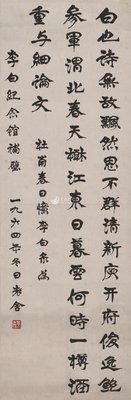 白也詩無敵飄然思不群清新庾開府俊逸鮑
參軍渭北春天樹江東日暮雲何時一樽酒
重與細論文 杜甫春日憶李白
李白紀念館補壁
一九六四年冬日 老舍